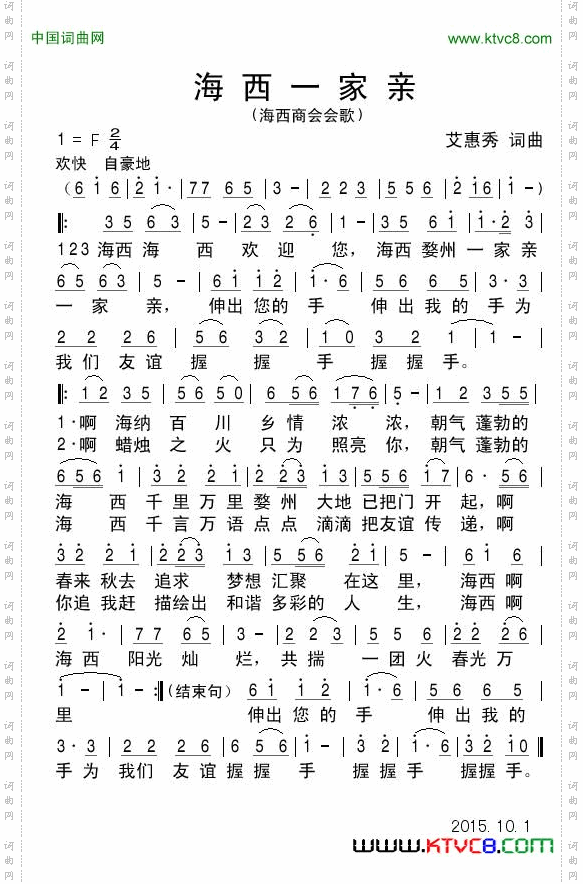 中国词曲网 www.ktvc8.com
海西一家亲
(海西商会会歌)
1 = F 2/4 艾惠秀 词曲
欢快 自豪地
(6 1 6 | 2 1· | 77 6 5 | 3 - | 2 2 3 | 2 2 3 | 5 5 6 | 2 16 | 1 - )
|: 3 5 6 3 | 5 - | 2 3 2 6 | 1 - | 3 5 6 1 | 1·2 3 |
1 2 3 海西 海 西 欢 迎 您， 海西 婺州 一 家 亲
6 5 6 3 | 5 - | 6 1 1 2 | 1· 6 | 5 6 6 5 | 3· 3 |
一 家 亲， 伸出 您的 手 伸 出 我 的 手 为
2 2 2 6 | 5 6 3 2 | 1 0 3 2 | 1 | 1 - |
我 们 友 谊 握 握 手 握 握 手。
|: 1 2 3 5 | 5 6 5 0 | 6 5 6 | 1 7 6 | 5 - | 1 2 3 5 5 |
1·啊 海纳 百 川 乡 情 浓 浓， 朝气 蓬勃的
2·啊 蜡烛 之 火 只 为 照亮 你， 朝气 蓬勃的
6 5 6 1 | 3 2 2 1 | 2 2 3 1 3 | 5 5 6 1 7 | 6· 5 6 |
海 西 千 里 万 里 婺 州 大地 已把门 开 起，啊
海 西 千 言 万 语 点 点 滴滴 把友谊 传 递，啊
3 2 2 1 | 2 2 3 1 3 | 5 5 6 2 1 | 5 - | 6 1 6 |
春来 秋去 追求 梦想 汇聚 在这 里， 海西 啊
你追 我赶 描绘出 和谐 多彩的 人 生， 海西 啊
2 1· | 7 7 6 5 | 3 - | 2 2 3 | 5 5 6 | 2 2 6 |
海 西 阳光 灿 烂， 共 揣 一 团 火 春光 万
1 - | 1 - :|(结束句) 6 1 1 2 | 1· 6 | 5 6 6 5 |
里 伸出 您的 手 伸出 我的
3· 3 | 2 2 2 6 | 5 6 3 2 | 1 - | 3 2 | 1· 6 | 3 2 10 ‖
手 为 我们 友谊 握握 手 握握 手 握握 手。
2015. 10. 1
www.KTVC8.com
词
曲
网